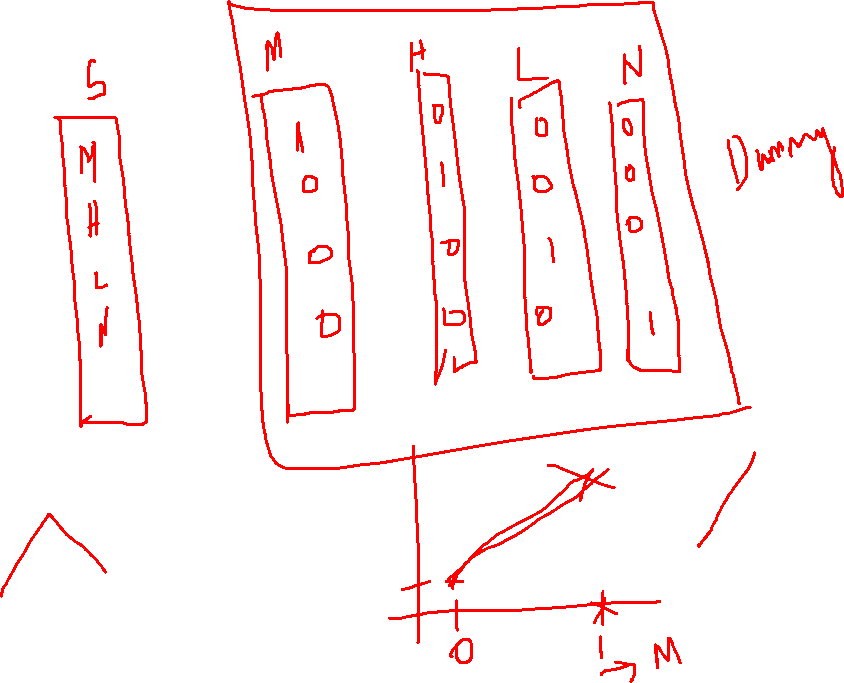 S M H L N
M 1 0 0 0
H 0 1 0 0
L 0 0 1 0
N 0 0 0 1
Dummy
0 1 → M